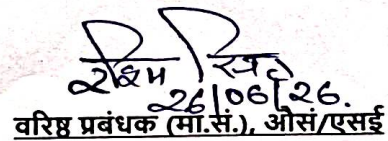 रश्मि सिंह
26/06/26.
वरिष्ठ प्रबंधक (मा.सं.), ओसं/एसई